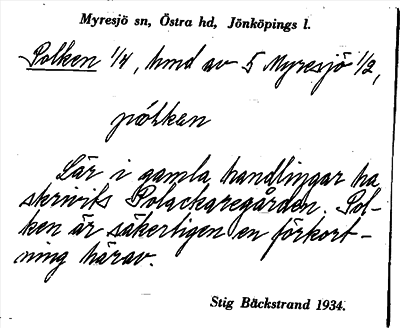 Myresjö sn, Östra hd, Jönköpings l.
Polken 1/4, hmd av 5 Myresjö 1/2,
pòlken
Lär i gamla handlingar ha
skrivits Polackaregården. Pol-
ken är säkerligen en förkort-
ning härav.
Stig Bäckstrand 1934.